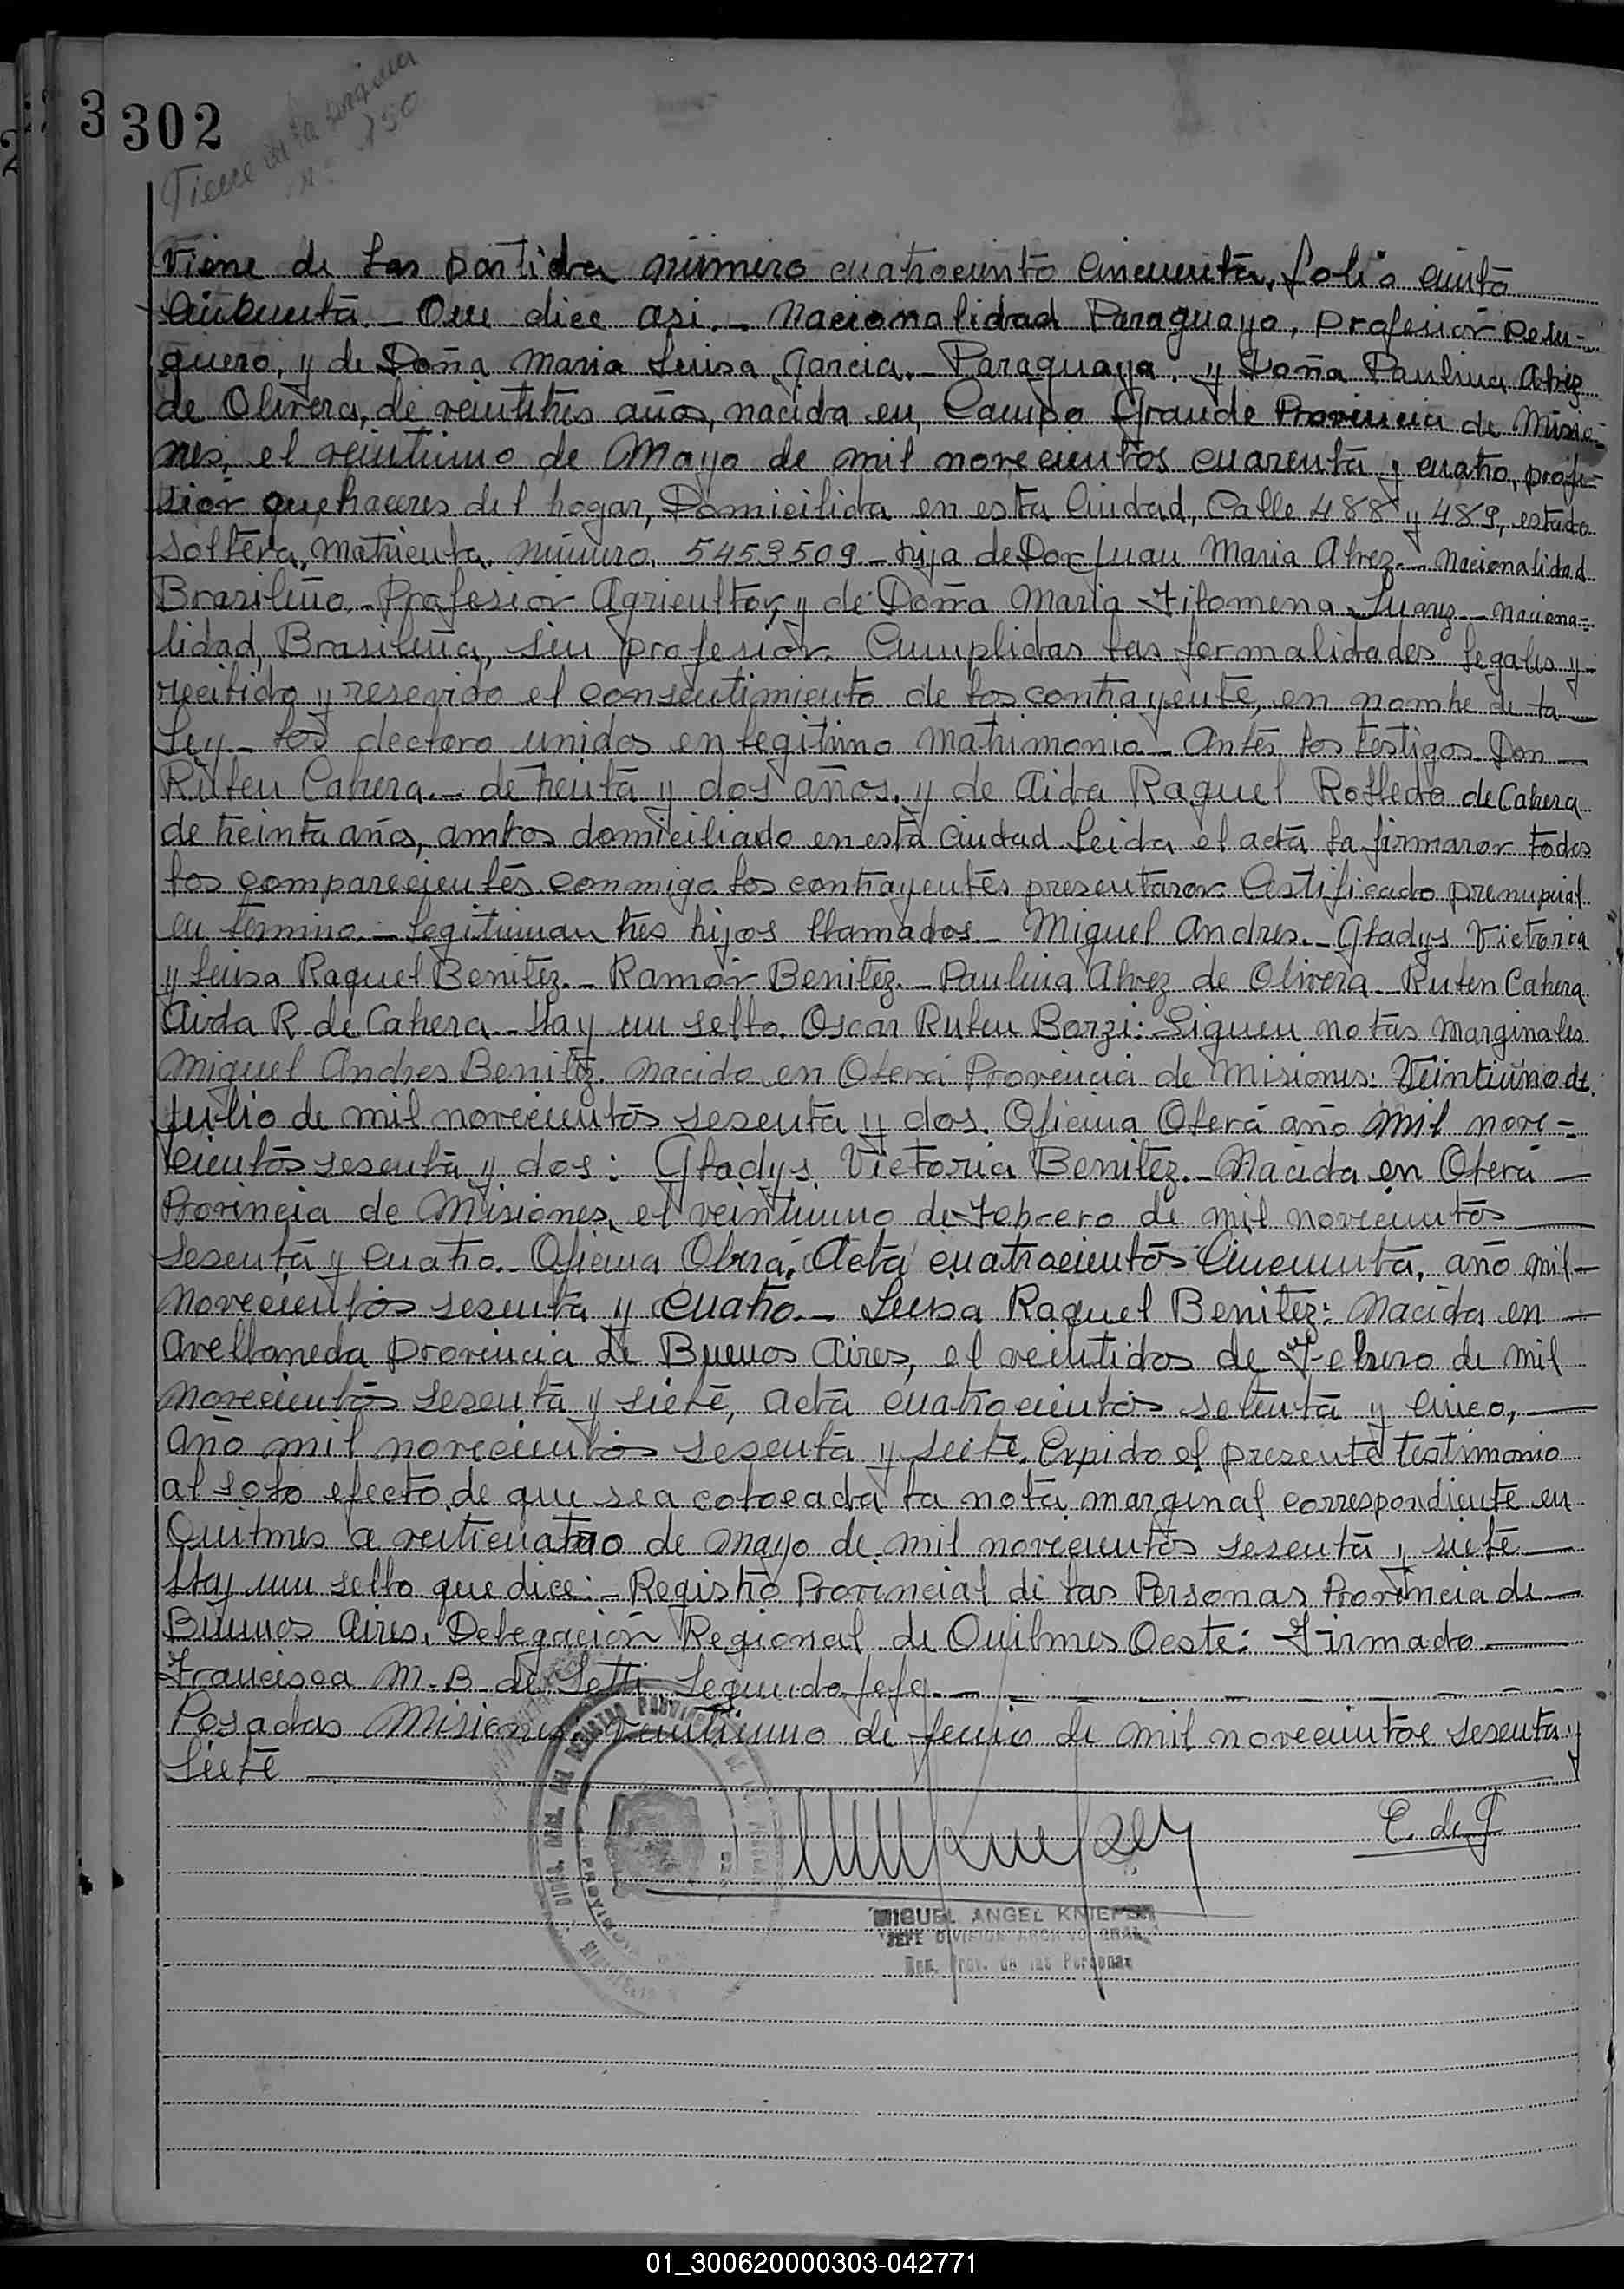 3 302
Tiene
150
Viene de las partida número cuatrociento cincuenta, folio ciento
cincuenta.- Que dice asi.- Nacionalidad Paraguayo, profesiór pelu-
quero, y de Doña Maria Luisa Garcia.- Paraguaya, y Doña Paulina Alvez
de Olivera, de veintitrés años, nacida en, Campo Grande Provincia de Misio-
nes, el veintiuno de Mayo de mil novecientos cuarenta y cuatro, profe-
siór quehaceres del hogar, Domicilida en esta Ciudad, Calle 488 y 489, estado
soltera, Matricula, número, 5453509 - hija de Dor Juan Maria Alvez.- Nacionalidad
Brasileño.- Profesiór Agricultor, y de Doña Maria Filomena Suarez.- Naciona-
lidad, Brasileña, sin profesiór. Cumplidas las formalidades legales y-
recibido y reservido el consentimiento de los contrayente, en nombre de la
Ley.- los declaro unidos en legitimo matrimonio.- Antes los testigos. Don
Ruben Cabrera.- de treinta y dos años, y de Aida Raquel Robledo de Cabrera
de treinta años, ambos domiciliado en esta Ciudad. Leida el acta la firmaror todos
los comparecientes conmigo los contrayentes presentaror Certificado prenupcial
en termino.- Legitiman tres hijos llamados.- Miguel Andres.- Gladys Victoria
y Luisa Raquel Benitez.- Ramór Benitez.- Paulina Alvez de Olivera.- Ruben Cabrera
Aida R. de Cabrera.- Hay un sello. Oscar Ruben Borzi: Siguen notas marginales
Miguel Andres Benitez. Nacido en Oberá Provincia de Misiones: Veintiuno de
Julio de mil novecientos sesenta y dos. Oficina Oberá año mil nove-
cientos sesenta y dos: Gladys Victoria Benitez.- Nacida en Oberá
Provincia de Misiones, el veintiuno de Febrero de mil novecientos
sesenta y cuatro.- Oficina Oberá, Acta cuatrocientos Cincuenta, año mil-
novecientos sesenta y cuatro.- Luisa Raquel Benitez: Nacida en
Avellaneda Provincia de Buenos Aires, el veintidos de Febrero de mil
novecientos sesenta y siete, acta cuatrocientos setenta y cinco,
Año mil novecientos sesenta y siete. Expido el presente testimonio
al solo efecto de que sea colocada la nota marginal correspondiente en
Quilmes a veiticuatro de mayo de mil novecientos sesenta y siete
Hay un sello que dice:- Registro Provincial de las Personas Provincia de
Buenos Aires, Delegación Regional de Quilmes Oeste: Firmado
Francisca M. B. de Setti Segundo Jefe.-
Posadas Misiones, veintiuno de Junio de mil novecientos sesenta y
Siete
C. de J
MIGUEL ANGEL KNIEPER
JEFE DIVISION ARCHIVO GRAL.
Reg. Prov. de las Personas
01_300620000303-042771